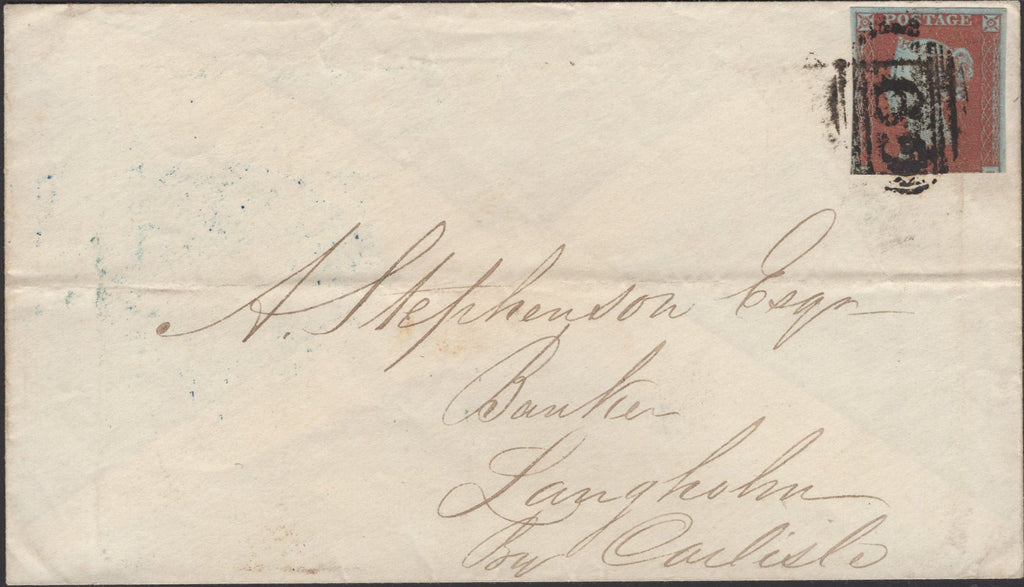 POSTAGE
A. Stephenson Esqr
Banker
Langholm
By Carlisle